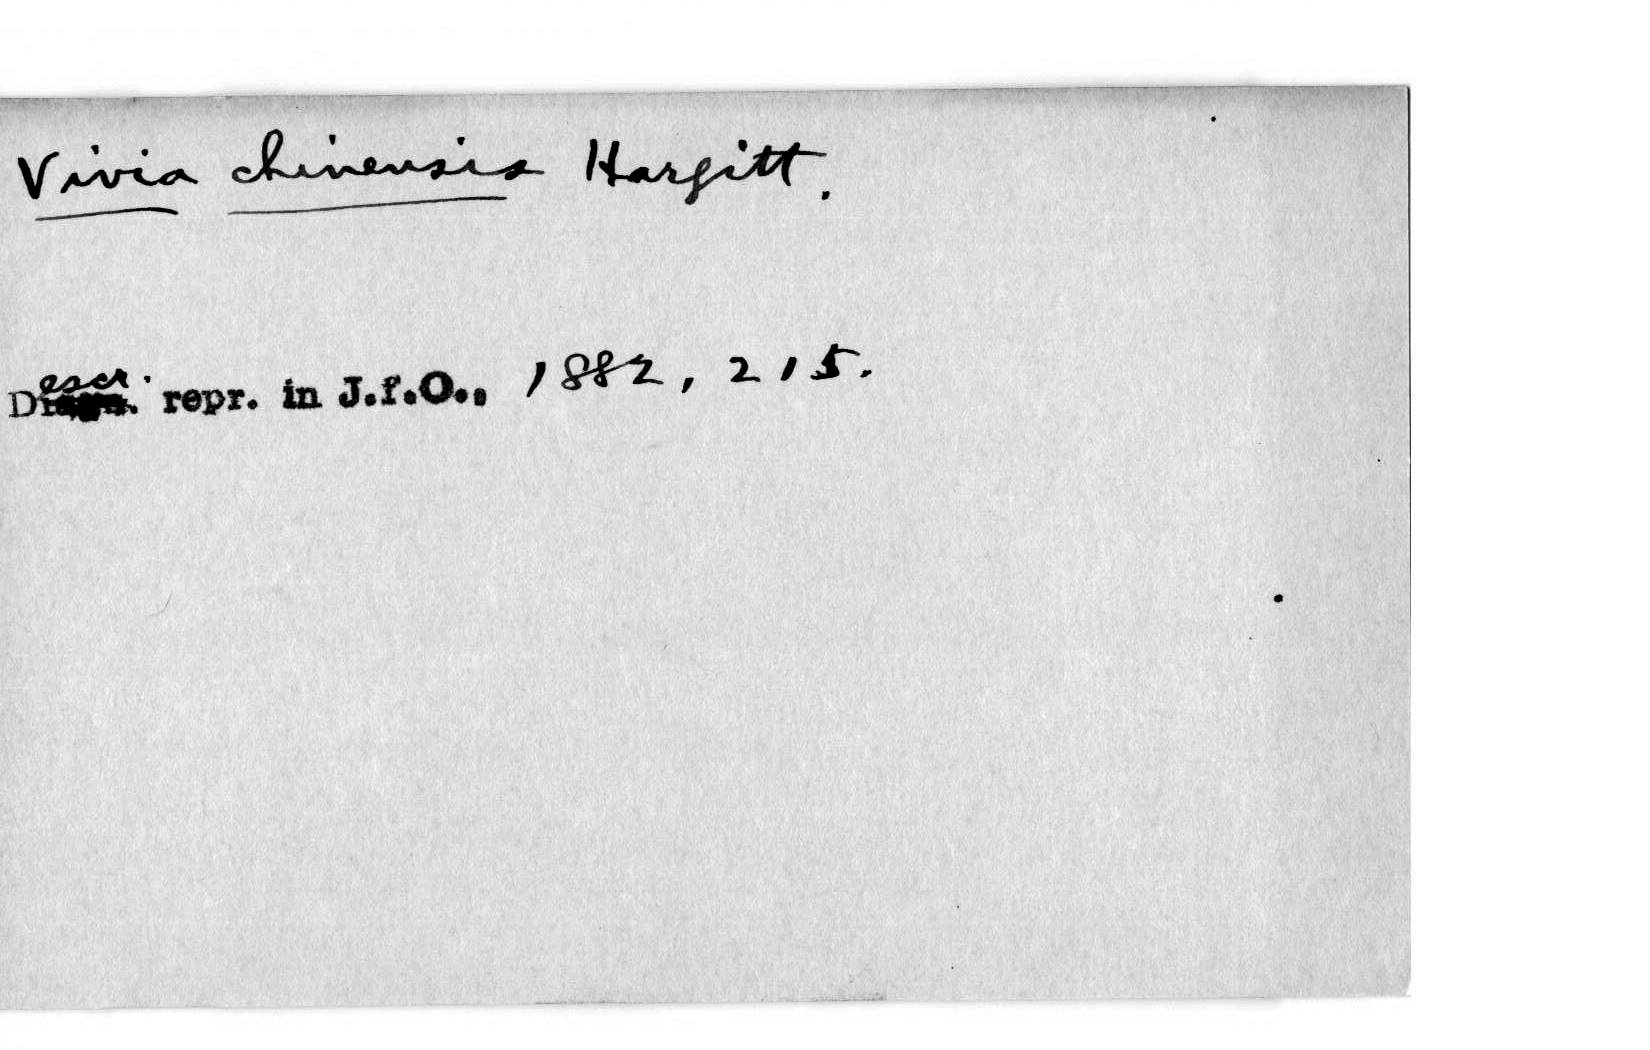 Vivia chinensis Hargitt.
Descr. repr. in J.f.O., 1882, 215.